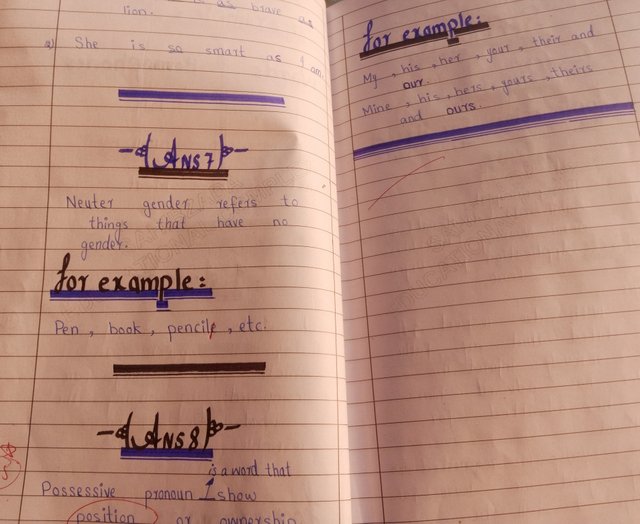 is as brave as
lion.
2) She is so smart as I am.
ANS 7
Neuter gender refers to
things that have no
gender.
for example:
Pen, book, pencil, etc.
ANS 8
is a word that
Possessive pronoun show
position or ownership
for example:
My, his, her, your, their and
our.
Mine, his, hers, yours, theirs
and ours.